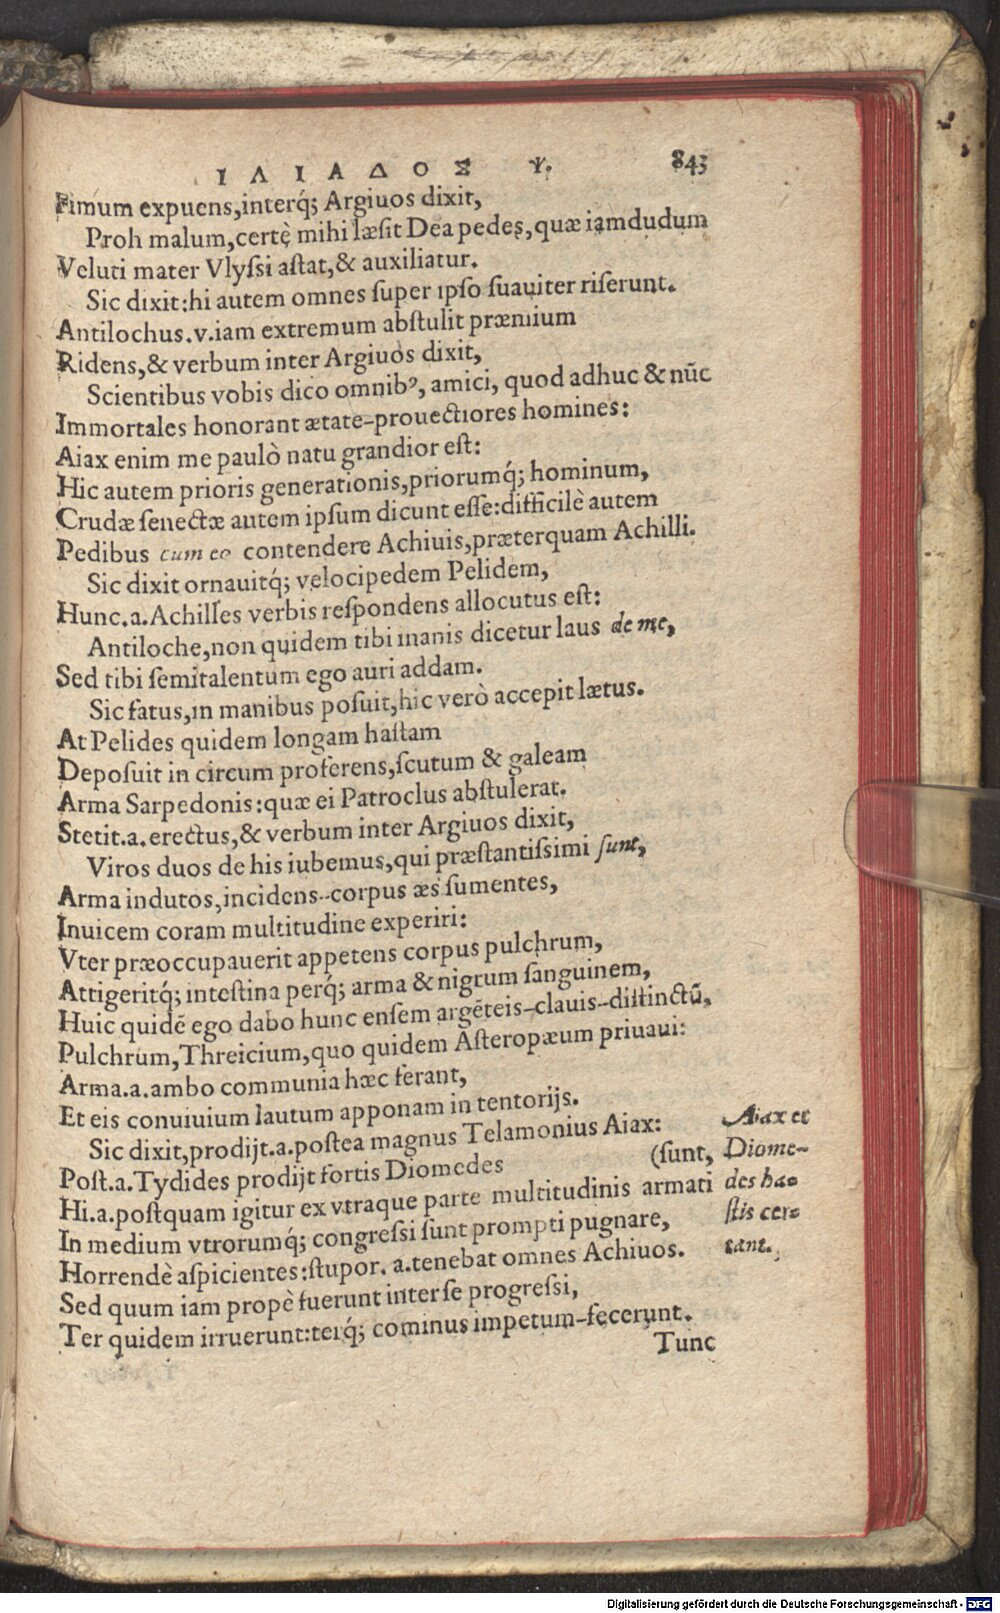 ΙΛΙΑΔΟΣ Ψ. 843
Fimum expuens,interq́; Argiuos dixit,
Proh malum,certè mihi læsit Dea pedes,quæ iamdudum
Veluti mater Vlyſſi aſtat,& auxiliatur.
Sic dixit:hi autem omnes ſuper ipſo ſuauiter riſerunt.
Antilochus.v.iam extremum abſtulit præmium
Ridens,& verbum inter Argiuos dixit,
Scientibus vobis dico omnibꝰ, amici, quod adhuc & nũc
Immortales honorant ætate-prouectiores homines:
Aiax enim me paulò natu grandior eſt:
Hic autem prioris generationis,priorumq́; hominum,
Crudæ ſenectæ autem ipſum dicunt eſſe:difficilè autem
Pedibus cum eo contendere Achiuis,præterquam Achilli.
Sic dixit ornauitq́; velocipedem Pelidem,
Hunc.a.Achilles verbis reſpondens allocutus eſt:
Antiloche,non quidem tibi inanis dicetur laus de me,
Sed tibi ſemitalentum ego auri addam.
Sic fatus,in manibus poſuit,hic verò accepit lætus.
At Pelides quidem longam haſtam
Depoſuit in circum proferens,ſcutum & galeam
Arma Sarpedonis:quæ ei Patroclus abſtulerat.
Stetit.a.erectus,& verbum inter Argiuos dixit,
Viros duos de his iubemus,qui præſtantiſſimi ſunt,
Arma indutos,incidens-corpus æs ſumentes,
Inuicem coram multitudine experiri:
Vter præoccupauerit appetens corpus pulchrum,
Attigeritq́; inteſtina perq́; arma & nigrum ſanguinem,
Huic quidẽ ego dabo hunc enſem argẽteis-clauis-diſtinctũ,
Pulchrum,Threicium,quo quidem Aſteropæum priuaui:
Arma.a.ambo communia hæc ferant,
Et eis conuiuium lautum apponam in tentorijs.
Sic dixit,prodijt.a.poſtea magnus Telamonius Aiax:
Poſt.a.Tydides prodijt fortis Diomedes (ſunt,
Hi.a.poſtquam igitur ex vtraque parte multitudinis armati
In medium vtrorumq́; congreſſi ſunt prompti pugnare,
Horrendè aſpicientes:ſtupor. a.tenebat omnes Achiuos.
Sed quum iam propè fuerunt inter ſe progreſſi,
Ter quidem irruerunt:terq́; cominus impetum-fecerunt.
Tunc
Aiax et
Diome-
des ha-
ſtis cer-
tant.
Digitalisierung gefördert durch die Deutsche Forschungsgemeinschaft - DFG